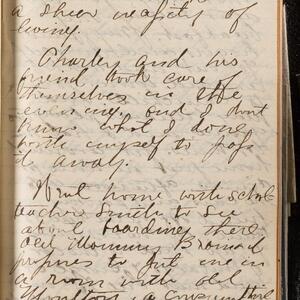 a sheer necessity of
living.
Charley and his
friend took care of
themselves in the
evening. and I don't
know what I done
with myself to pass
it away.
Went home with school
teacher Smith to see
about boarding there
old Mommy
proposes to put me in
a room with old